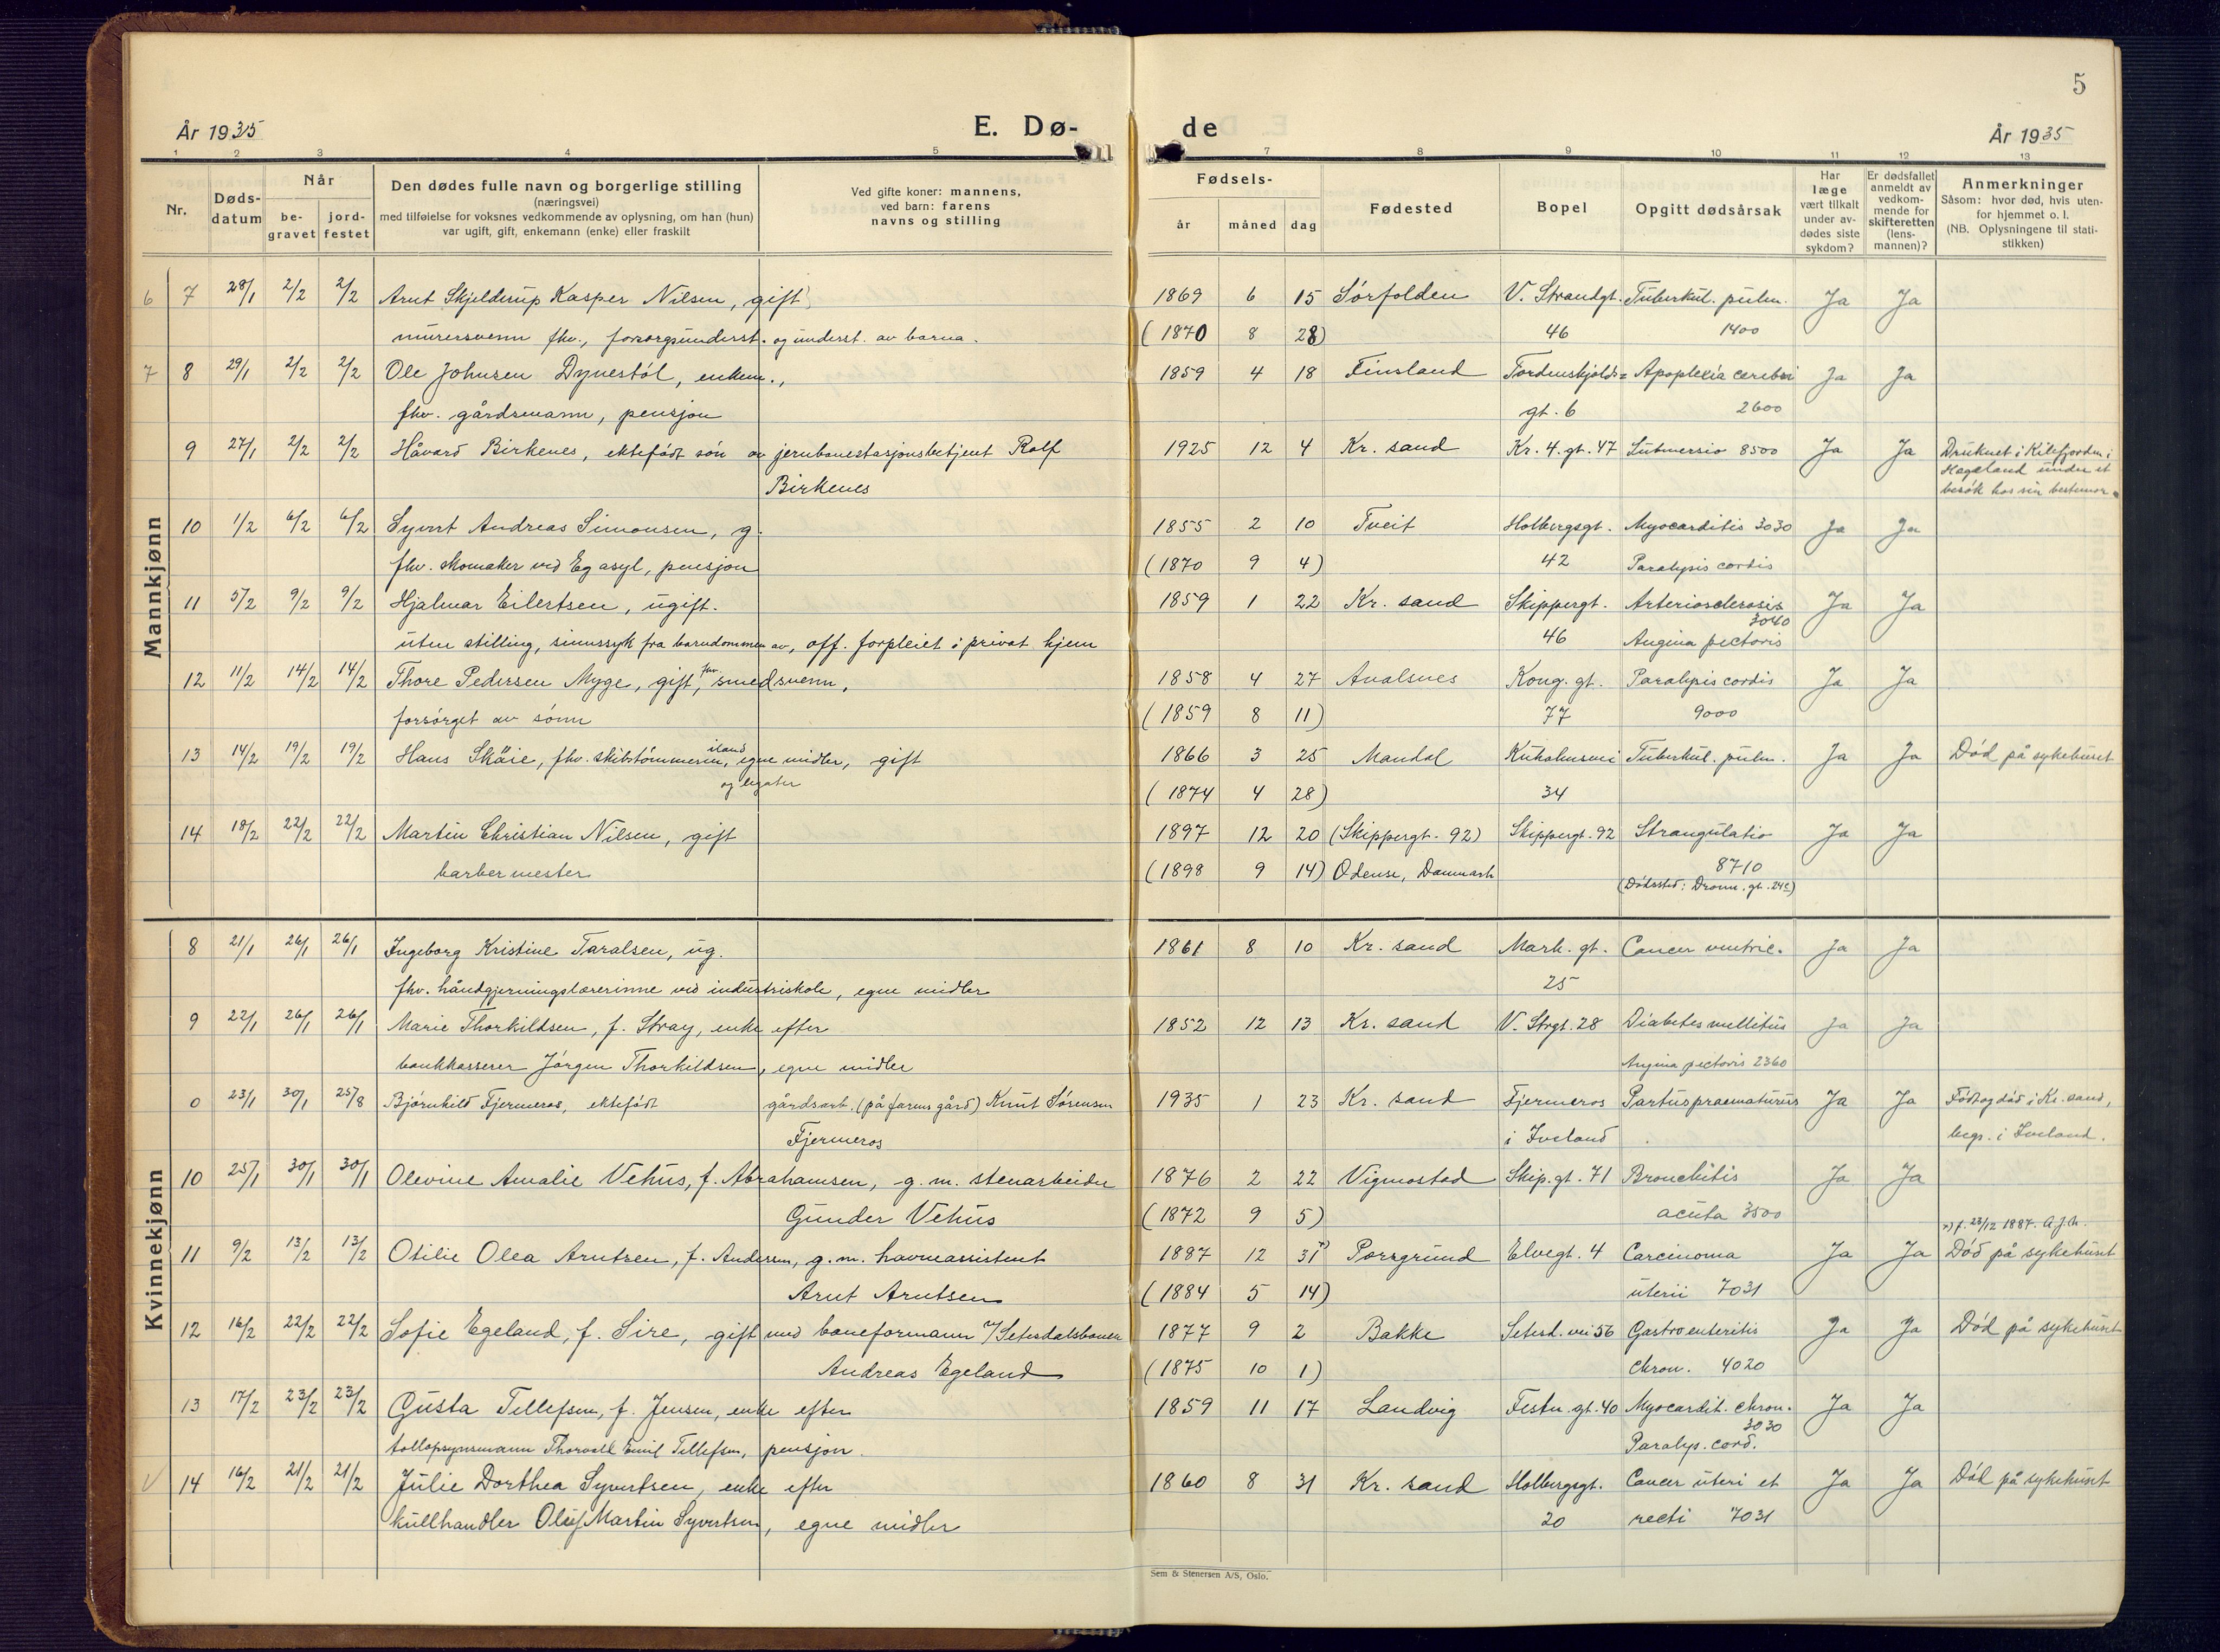 5
År 1935
E. Dø-
de
År 1935
1 2 3 4 5
7 8 9 10 11 12 13
Nr.
Døds-
datum
Når
be-
gravet
jord-
festet
Den dødes fulle navn og borgerlige stilling
(næringsvei)
med tilføielse for voksnes vedkommende av oplysning, om han (hun)
var ugift, gift, enkemann (enke) eller fraskilt
Ved gifte koner: mannens,
ved barn: farens
navns og stilling
Fødsels-
år
måned
dag
Fødested
Bopel
Opgitt dødsårsak
Har
læge
vært tilkalt
under av-
dødes siste
sykdom?
Er dødsfallet
anmeldt av
vedkom-
mende for
skifteretten
(lens-
mannen)?
Anmerkninger
Såsom: hvor død, hvis uten-
for hjemmet o. l.
(NB. Oplysningene til stati-
stikken)
Mannkjønn
6 7 28/1 2/2 2/2 Arnt Skjelderup Kasper Nilsen, gift 1869 6 15 Sörfolden V. Strandgt. Tuberkul. pulm. Ja Ja
murersvenn fhv., forsorgsunderst. og underst. av barna. (1870 8 28) 46 1400
7 8 29/1 2/2 2/2 Ole Johnsen Dynestöl, enkem., 1859 4 18 Finsland Tordenskjolds= Apoplexia cerebri Ja Ja
fhv. gårdsmann, pensjon gt. 6 2600
9 27/1 2/2 2/2 Håvard Birkenes, ektefödt sön av jernbanestasjonsbetjent Rolf 1925 12 4 Kr. sand Kr. 4. gt. 47 Submersio 8500 Ja Ja Druknet i Kilefjorden i
Birkenes Hægeland under et
besök hos sin bestemor.
10 1/2 6/2 6/2 Syvert Andreas Simonsen, g. 1855 2 10 Tveit Holbergsgt. Myocarditis 3030 Ja Ja
fhv. skomaker ved Eg asyl, pensjon (1870 9 4) 42 Paralysis cordis
11 5/2 9/2 9/2 Hjalmar Eilertsen, ugift. 1859 1 22 Kr. sand Skippergt. Arteriosclerosis Ja Ja
3040
uten stilling, sinnssyk fra barndommen av, off. forpleiet i privat hjem 46 Angina pectoris
12 11/2 14/2 14/2 Thore Pedersen Myge, gift, fhv. smedsvenn, 1858 4 27 Avalsnes Kong. gt. Paralysis cordis Ja Ja
forsörget av sönn (1859 8 11) 77 9000
13 14/2 19/2 19/2 Hans Skäie, fhv. skibstömmerm. iland, egne midler, gift 1866 3 25 Mandal Kuholmsvei Tuberkul. pulm. Ja Ja Död på sykehuset
og legater (1874 4 28) 34
14 18/2 22/2 22/2 Martin Christian Nilsen, gift 1897 12 20 (Skippergt. 92) Skippergt. 92 Strangulatio Ja Ja
barbermester (1898 9 14) Odense, Danmark 8710
(Dödssted: Dronn. gt. 24c)
Kvinnekjønn
8 21/1 26/1 26/1 Ingeborg Kristine Taralsen, ug. 1861 8 10 Kr. sand Mark. gt. Cancer ventric. Ja Ja
fhv. håndgjerningslærerinne ved industriskole, egne midler 25
9 22/1 26/1 26/1 Marie Thorkildsen, f. Stray, enke efter 1852 12 13 Kr. sand V. Strgt. 28 Diabetes mellitus Ja Ja
bankkasserer Jörgen Thorkildsen, egne midler Angina pectoris 2360
0 23/1 30/1 25/8 Bjørnhild Fjermeros, ektefödt gårdsarb. (på farens gård) Knut Sörensen 1935 1 23 Kr. sand Fjermeros Partus praematurus Ja Ja Född og död i Kr. sand,
Fjermeros i Iveland begr. i Iveland.
10 25/1 30/1 30/1 Olevine Amalie Vehus, f. Abrahamsen, g. m. stenarbeider 1876 2 22 Vigmostad Skip. gt. 71 Bronchitis Ja Ja
Gunder Vehus (1872 9 5) acuta 3500
x) f. 23/12 1887. A.J.h.
11 9/2 13/2 13/2 Otilie Olea Arntsen, f. Andersen, g. m. havneassistent 1887 12 31 x) Porsgrund Elvegt. 4 Carcinoma Ja Ja Död på sykehuset
Arnt Arntsen (1884 5 14) uterii 7031
12 16/2 22/2 22/2 Sofie Egeland, f. Sire, gift med baneformann v/Setesdalsbanen 1877 9 2 Bakke Setesd. vei 56 Gastroenteritis Ja Ja Död på sykehuset
Andreas Egeland (1875 10 1) chron. 4020
13 17/2 23/2 23/2 Gusta Tellefsen, f. Jensen, enke efter 1859 11 17 Landvig Festn. gt. 40 Myocardit. chron. Ja Ja
3030
tollopsynsmann Thorvald Emil Tellefsen, pensjon. Paralys. cord.
V 14 16/2 21/2 21/2 Julie Dorthea Syvertsen, enke efter 1860 8 31 Kr. sand Holbergsgt. Cancer uteri et Ja Ja Död på sykehuset
kullhandler Oluf Martin Syvertsen, egne midler 20 recti 7031
Sem & Stenersen A/S, Oslo.